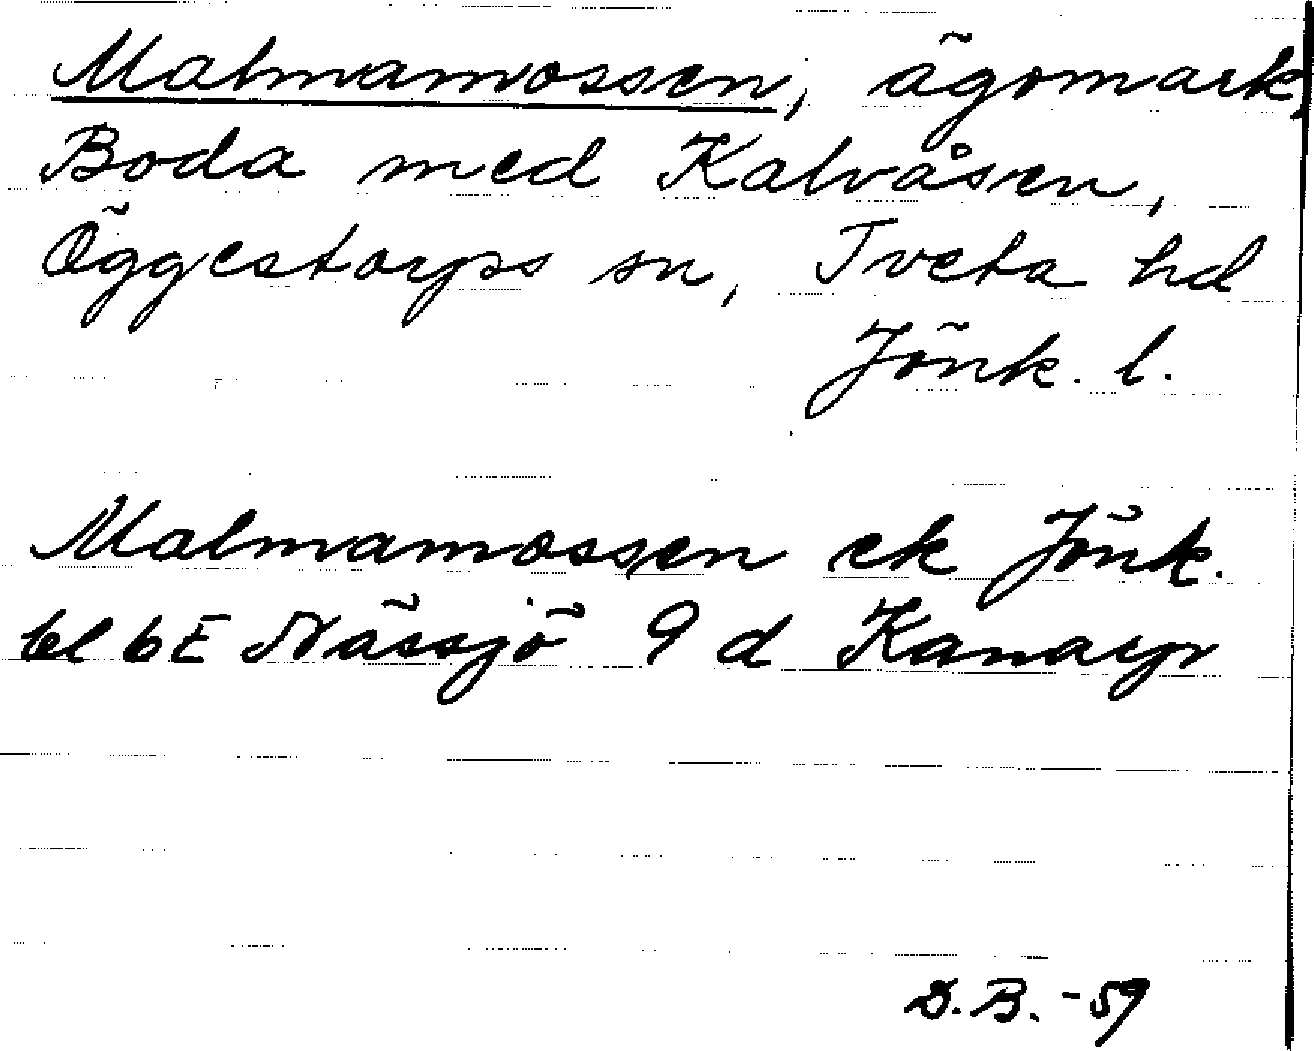 Malmamossen, ägomark,
Boda med Kalvåsen,
Öggestorps sn, Tveta hd
Jönk. l.
Malmamossen ek Jönk.
bl 6E Nässjö 9 d Kanarp
D.B. -59